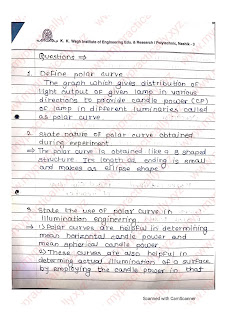 K. K. Wagh Institute of Engineering Edu. & Research / Polytechnic, Nashik - 3
Questions ⇒
1. Define polar curve
The graph which gives distribution of
light output of given lamp in various
directions to provide candle power (CP)
of lamp in different luminaries called
as polar curve
2. State nature of polar curve obtained
during experiment
⇒ The polar curve is obtained like a 8 shaped
structure. Its length at ending is small
and makes as ellipse shape
3. State the use of polar curve in
illumination engineering
⇒ 1) Polar curves are helpful in determining
mean horizontal candle power and
mean spherical candle power
2) These curves are also helpful in
determing actual illumination of a surface
by employing the candle power in that
Scanned with CamScanner